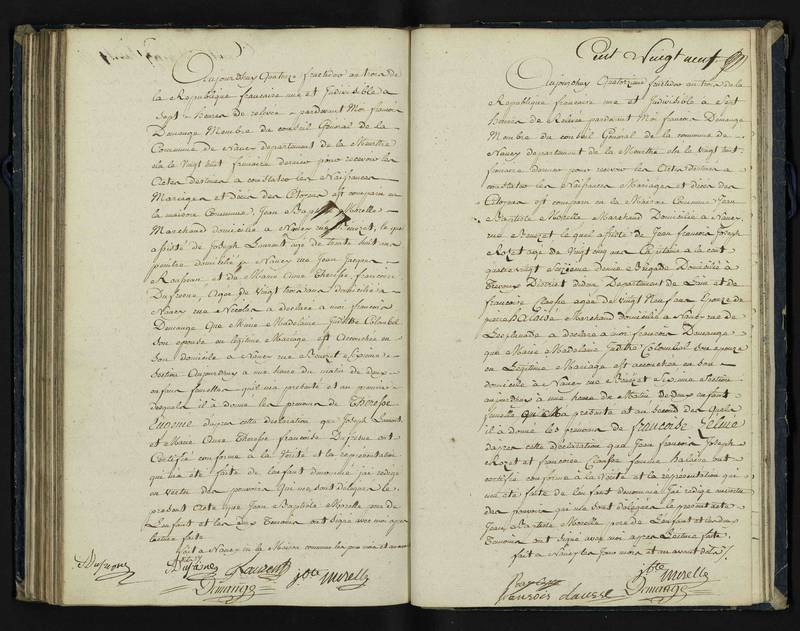 Aujourdhuy Quatorze fructidor an trois de
la Republique francaise une et Indivisible a
Sept heures de relevée pardevant Moi francois
Demange Membre du conseil General de la
Commune de Nancy departement de la Meurthe
élu le Vingt huit frimaire dernier pour recevoir les
Actes destinés a constater les Naissances
Mariages et Décès des Citoyens est comparu en
la maison Commune, Jean Baptiste Morelle
Marchand domicilié a Nancy rue Beuzet, le quel
assisté de Joseph Laurent agé de trente huit ans
peintre domicilié a Nancy rue Jean Jacques
Rousseau et de Marie Anne Theresse francoise
Dufresne, Agée de Vingt trois ans domiciliée a
Nancy rue Nicolas a déclaré a moi francois
Demange Que Marie Madelaine Judithe Colombel
Son epouse en légitime Mariage est Accouchée en
Son domicile a Nancy rue Beuzet Sixieme
Section Aujourdhuy a une heure du matin de deux
enfans femelles qu'il m'a presenté et au premier
desquels il a donné les prenoms de Theresse
Eugenie d'apres cette declaration que Joseph Laurent
et Marie Anne Theresse francoise Dufresne ont
Certifié conforme à la Vérité et la représentation
qui m'a été faite de l'enfant denommé j'ai redigé
en vertu des pouvoirs Qui me sont délégués le
present Acte que Jean Baptiste Morelle pere de
L'enfant et les deux Temoins ont Signé avec moi apres
lecture faite
fait a Nancy en la Maison commune les jour mois et an
Dufresne
Laurent jbte morelle
Demange
Cent Vingt neuf
Aujourdhuy Quatorzieme fructidor an trois de la
Republique francaise une et Indivisible a Sept
heures de Relevée pardevant Moi francois Demange
Membre du conseil General de la commune de
Nancy departement de la Meurthe élu le vingt huit
frimaire dernier pour recevoir les Actes destinés a
constater les Naissances Mariages et décès des
Citoyens est comparu en la Maison Commune Jean
Baptiste Morelle Marchand Domicilié a Nancy
rue Beuzet le quel assisté de Jean francois Joseph
Rozet agé de Vingt cinq ans Capitaine a la cent
quatre vingt Seizieme demie Brigade Domicilié à
District Departement de et de
francoise Clausse agée de Vingt Neuf ans Epouze de
Balaidé Marchand domiciliée a Nancy rue de
L'esplanade a déclaré a moi francois Demange
que Marie Madelaine Judithe Colombel Son epouze
en Légitime Mariage est accouchée en Son
domicile a Nancy rue Beuzet Sixieme Section
aujourdhuy à une heure du Matin de deux enfant
femelle qu'il m'a presenté et au second des Quels
il a donné les prenoms de francoise Zéline
d'apres cette declaration que Jean francois Joseph
Rozet et francoise Clausse femme Balaidé ont
certifié conforme a la Verité et la représentation qui
m'a été faite de l'enfant denommé j'ai redigé en vertu
des pouvoirs qui me sont délégués le present acte que
Jean Baptiste Morelle pere de L'enfant et les deux
Temoins ont Signé avec moi apres Lecture faite
fait a Nancy les Jour mois et an avant dits
jbte morelle
fransois clausse Demange